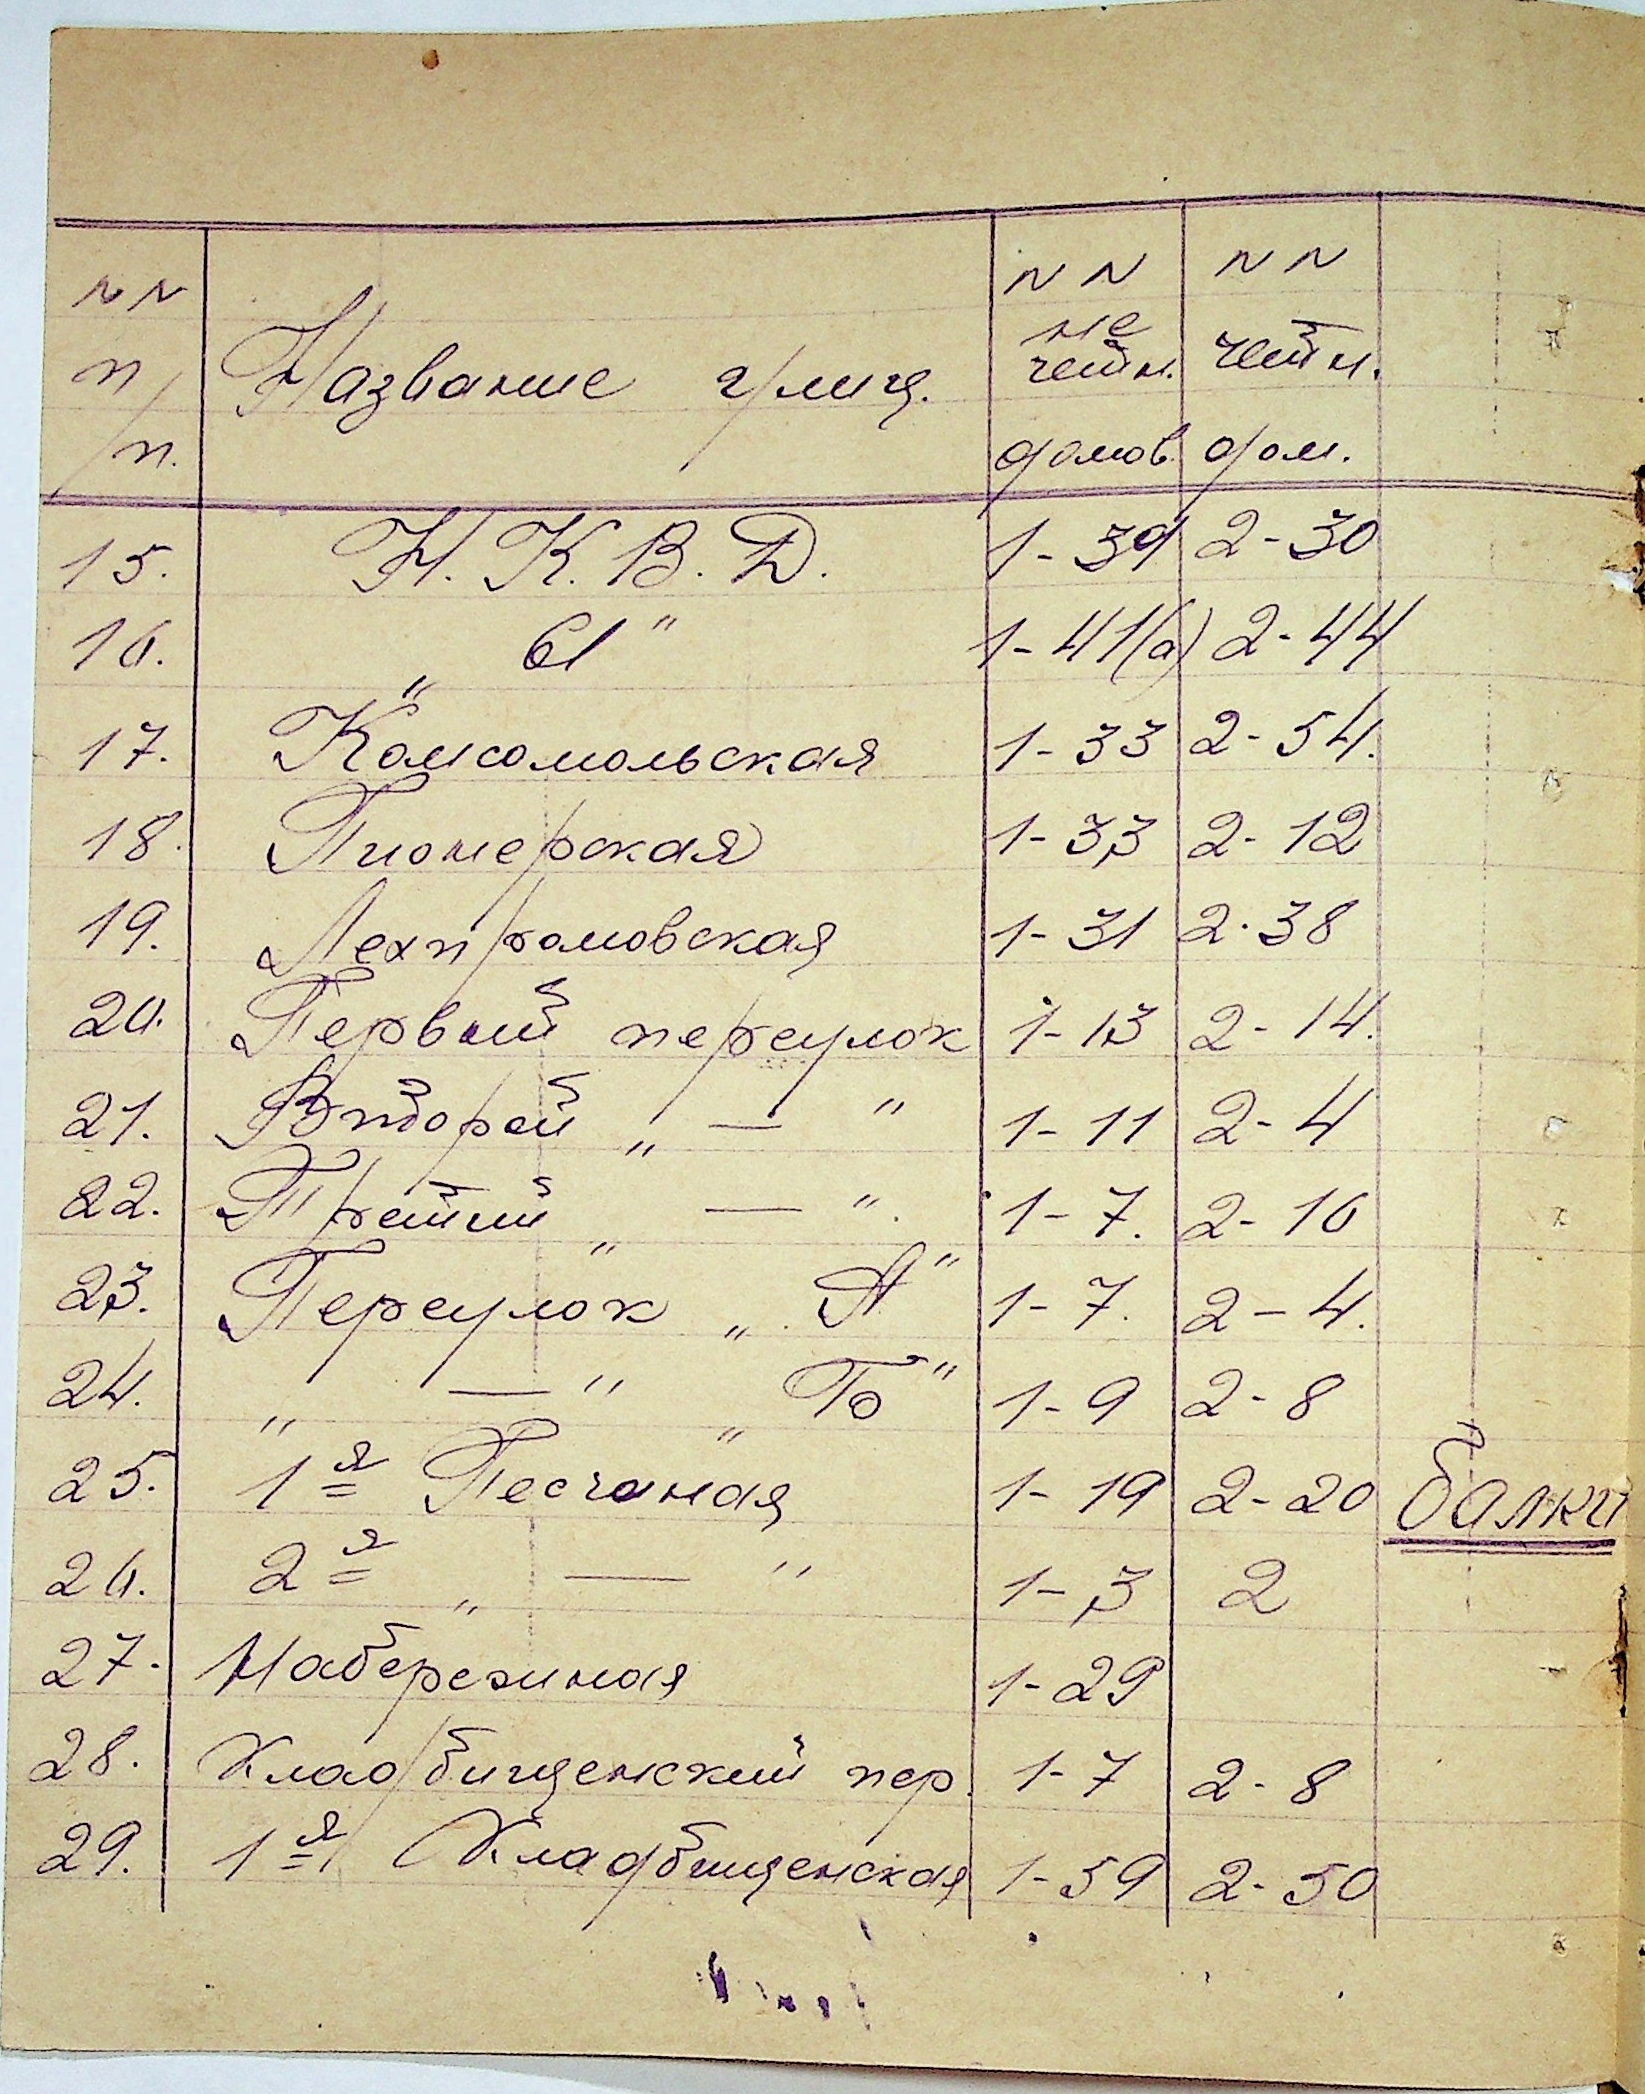 NN п/п. Название улиц. NN нечетн. домов NN четн. дом.
15. Н.К.В.Д. 1-39 2-30
16. „ 61" 1-41(а) 2-44
17. Комсомольская 1-33 2-54.
18. Пионерская 1-33 2-12
19. Лехпромовская 1-31 2-38
20. Первый переулок 1-13 2-14.
21. Второй „ — " 1-11 2-4
22. Третий „ — ". 1-7. 2-16
23. Переулок „А" 1-7. 2-4.
24. „ — " „Б" 1-9 2-8
25. 1я Песчаная 1-19 2-20 балки
26. 2я „ — " 1-3 2
27. Набережная 1-29
28. Кладбищенский пер. 1-7 2-8
29. 1я Кладбищенская 1-59 2-50